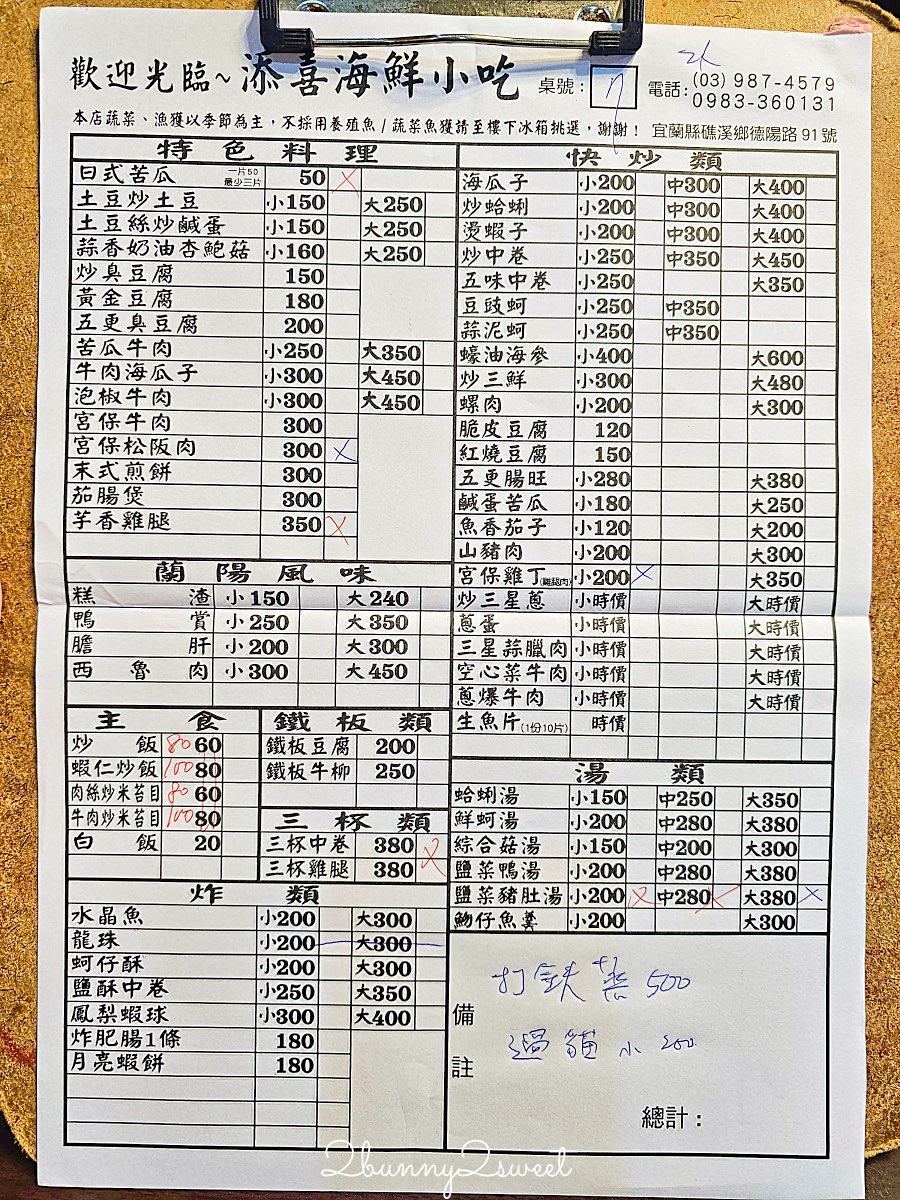 歡迎光臨~添喜海鮮小吃 桌號: 7 電話: (03) 987-4579
0983-360131
本店蔬菜、漁獲以季節為主，不採用養殖魚/蔬菜魚獲請至樓下冰箱挑選，謝謝! 宜蘭縣礁溪鄉德陽路91號
特色料理
日式苦瓜 一片50 最少三片 50 X
土豆炒土豆 小150 大250
土豆絲炒鹹蛋 小150 大250
蒜香奶油杏鮑菇 小160 大250
炒臭豆腐 150
黃金豆腐 180
五更臭豆腐 200
苦瓜牛肉 小250 大350
牛肉海瓜子 小300 大450
泡椒牛肉 小300 大450
宮保牛肉 300
宮保松阪肉 300 X
末式煎餅 300
茄腸煲 300
芋香雞腿 350 X
蘭陽風味
糕渣 小150 大240
鴨賞 小250 大350
膽肝 小200 大300
西魯肉 小300 大450
主食
炒飯 80 60
蝦仁炒飯 100 80
肉絲炒米苔目 80 60
牛肉炒米苔目 100 80
白飯 20
鐵板類
鐵板豆腐 200
鐵板牛柳 250
三杯類
三杯中卷 380 X
三杯雞腿 380
炸類
水晶魚 小200 大300
龍珠 小200 大300
蚵仔酥 小200 大300
鹽酥中卷 小250 大350
鳳梨蝦球 小300 大400
炸肥腸1條 180
月亮蝦餅 180
快炒類
海瓜子 小200 中300 大400
炒蛤蜊 小200 中300 大400
燙蝦子 小200 中300 大400
炒中卷 小250 中350 大450
五味中卷 小250 大350
豆豉蚵 小250 中350
蒜泥蚵 小250 中350
蠔油海參 小400 大600
炒三鮮 小300 大480
螺肉 小200 大300
脆皮豆腐 120
紅燒豆腐 150
五更腸旺 小280 大380
鹹蛋苦瓜 小180 大250
魚香茄子 小120 大200
山豬肉 小200 大300
宮保雞丁(雞腿肉) 小200 X 大350
炒三星蔥 小時價 大時價
蔥蛋 小時價 大時價
三星蒜臘肉 小時價 大時價
空心菜牛肉 小時價 大時價
蔥爆牛肉 小時價 大時價
生魚片(1份10片) 時價
湯類
蛤蜊湯 小150 中250 大350
鮮蚵湯 小200 中280 大380
綜合菇湯 小150 中200 大300
鹽菜鴨湯 小200 中280 大380
鹽菜豬肚湯 小200 X 中280 X 大380 X
魩仔魚羹 小200 大300
備註
打鉄菩 500
過貓 小 200
總計:
2bunny2sweet